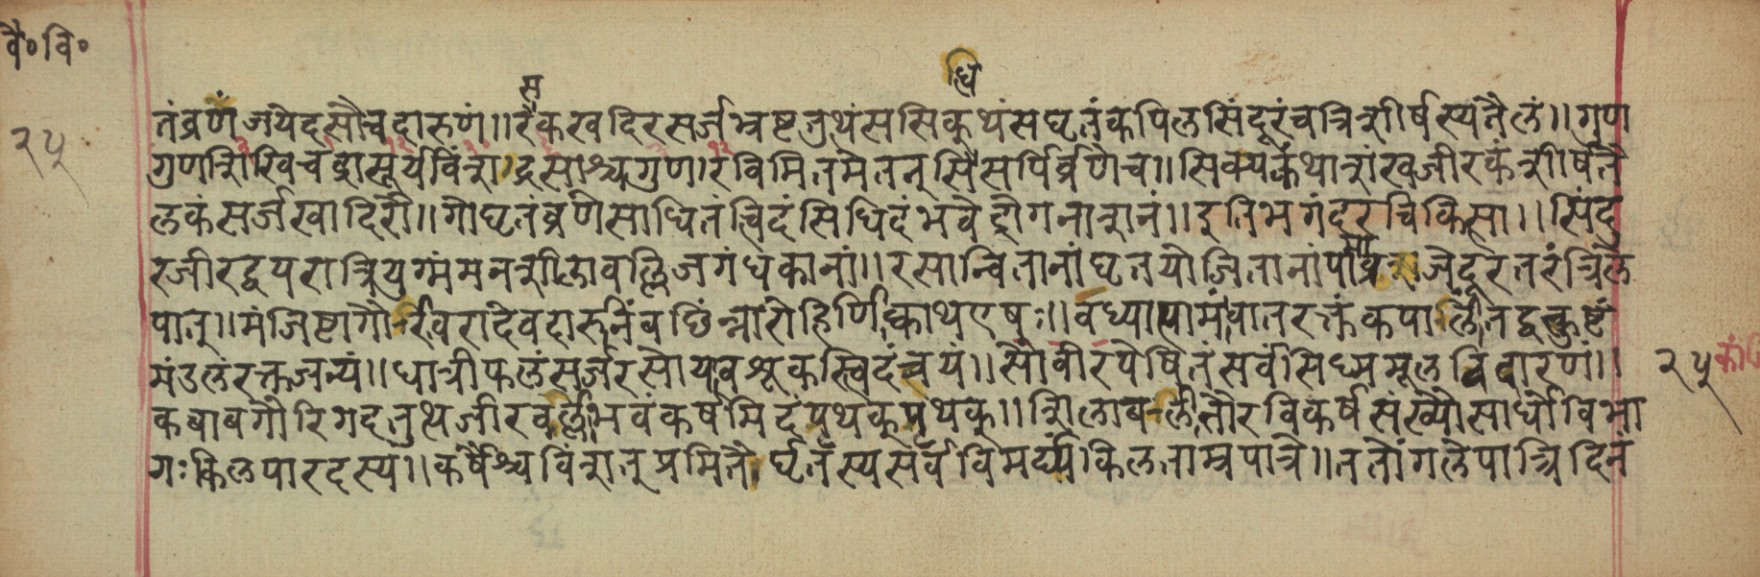 वै॰ वि॰
स
धि
तं व्रणं जयेदसौ च दारुणं ॥ रंकखदिरसर्जभ्रष्टतुथं ससिक्कुथं सघृतं कपिलसिंदूरं च त्रिशीर्षस्य तैलं ॥ गुण
२५
गुणशिखिचंद्रासूर्यविंशद्रसाश्च गुणरविमितमेतत् सर्पि व्रणे च ॥ सिक्थकंकथा खजीरकं शीर्षतै
लकं सर्जखादिरौ ॥ गोघृतं व्रणे साधितं त्विदं सिधिदं भवेद्रोगनाशनं ॥ इति भगंदरचिकित्सा ॥ सिंदु
रजीरद्वयरात्रियुग्मं मनशीला वल्लिजगंधकानां ॥ रसान्वितानां घृतयोजितानां पामा व्रजेद्दूरतरं त्रिले
पात् ॥ मंजिष्टागौरीवरादेवदारुनिंबछिंन्नारोहिणिक्काथ एषः ॥ वध्यापामं वातरक्तं कपालं तद्वत्कुष्टं
मंडलं रक्तजन्यं ॥ धात्रीफलं सर्जरसो यवशूकस्त्विदं त्रयं ॥ सौवीरपेषितं सर्वं सिध्ममूलविदारणं ॥
२५
कबाबगौरिगदतुत्थजीरवल्लीभवं कर्षमिदं पृथक् पृथक् ॥ शिलाबलीतो रविकर्षसंख्यो सार्धो विभा
गः किल पारदस्य ॥ कर्षैश्च विंशत् प्रमितै र्घृतस्य सर्वं विमर्द्य किल ताम्रपात्रे ॥ ततोंगलेपात्रिदिनं